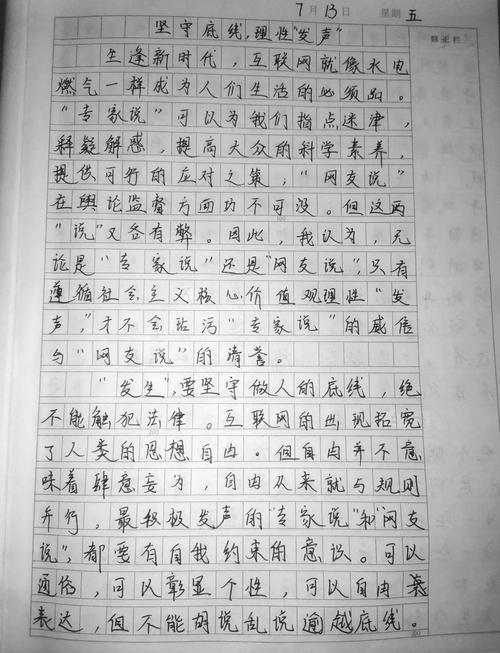 7月13日 星期五
坚守底线,理性"发声"
生逢新时代,互联网就像水电
燃气一样成为人们生活的必须品。
"专家说"可以为我们指点迷津,
释疑解惑,提高大众的科学素养,
提供可行的应对之策;"网友说"
在舆论监督方面功不可没。但这两
"说"又各有弊。因此,我认为,无
论是"专家说"还是"网友说",只有
遵循社会主义核心价值观理性"发
声",才不会玷污"专家说"的威信
与"网友说"的清誉。
"发生",要坚守做人的底线,绝
不能触犯法律。互联网的出现拓宽
了人类的思想自由。但自由并不意
味着肆意妄为,自由从来就与规则
并行,最积极发声的"专家说"和"网友
说",都要有自我约束的意识。可以
通俗,可以彰显个性,可以自由
表达,但不能胡说乱说逾越底线。